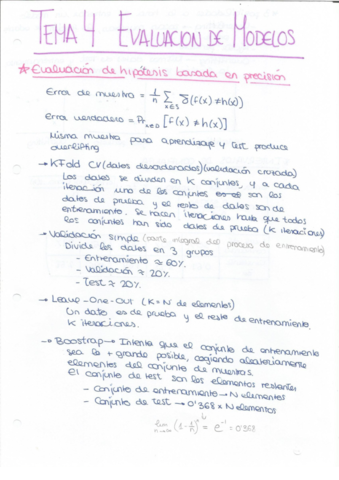 TEMA 4 EVALUACION DE MODELOS
* Evaluación de hipótesis basada en precisión
Error de muestra = 1/n Σ x∈S δ(f(x) ≠ h(x))
Error verdadero = Pr x∈D [f(x) ≠ h(x)]
Misma muestra para aprendizaje y test produce
overfitting
→ KFold CV (datos desordenados) (validación cruzada)
Los datos se dividen en K conjuntos, y a cada
iteración uno de los conjuntos es el de los
datos de prueba y el resto de datos son de
entrenamiento. Se hacen iteraciones hasta que todos
los conjuntos han sido datos de prueba (K iteraciones)
→ Validación simple (parte integral del proceso de entrenamiento)
Divide los datos en 3 grupos
- Entrenamiento ≈ 60%
- Validación ≈ 20%
- Test ≈ 20%
→ Leave-One-Out (K = N de elementos)
Un dato es de prueba y el resto de entrenamiento
K iteraciones.
→ Boostrap → Intenta que el conjunto de entrenamiento
sea lo + grande posible, cogiendo aleatoriamente
elementos del conjunto de muestras.
El conjunto de test son los elementos restantes
- Conjunto de entrenamiento → N elementos
- Conjunto de Test → 0'368 x N elementos
lim n→∞ (1 - 1/n)^n = e^-1 = 0'368